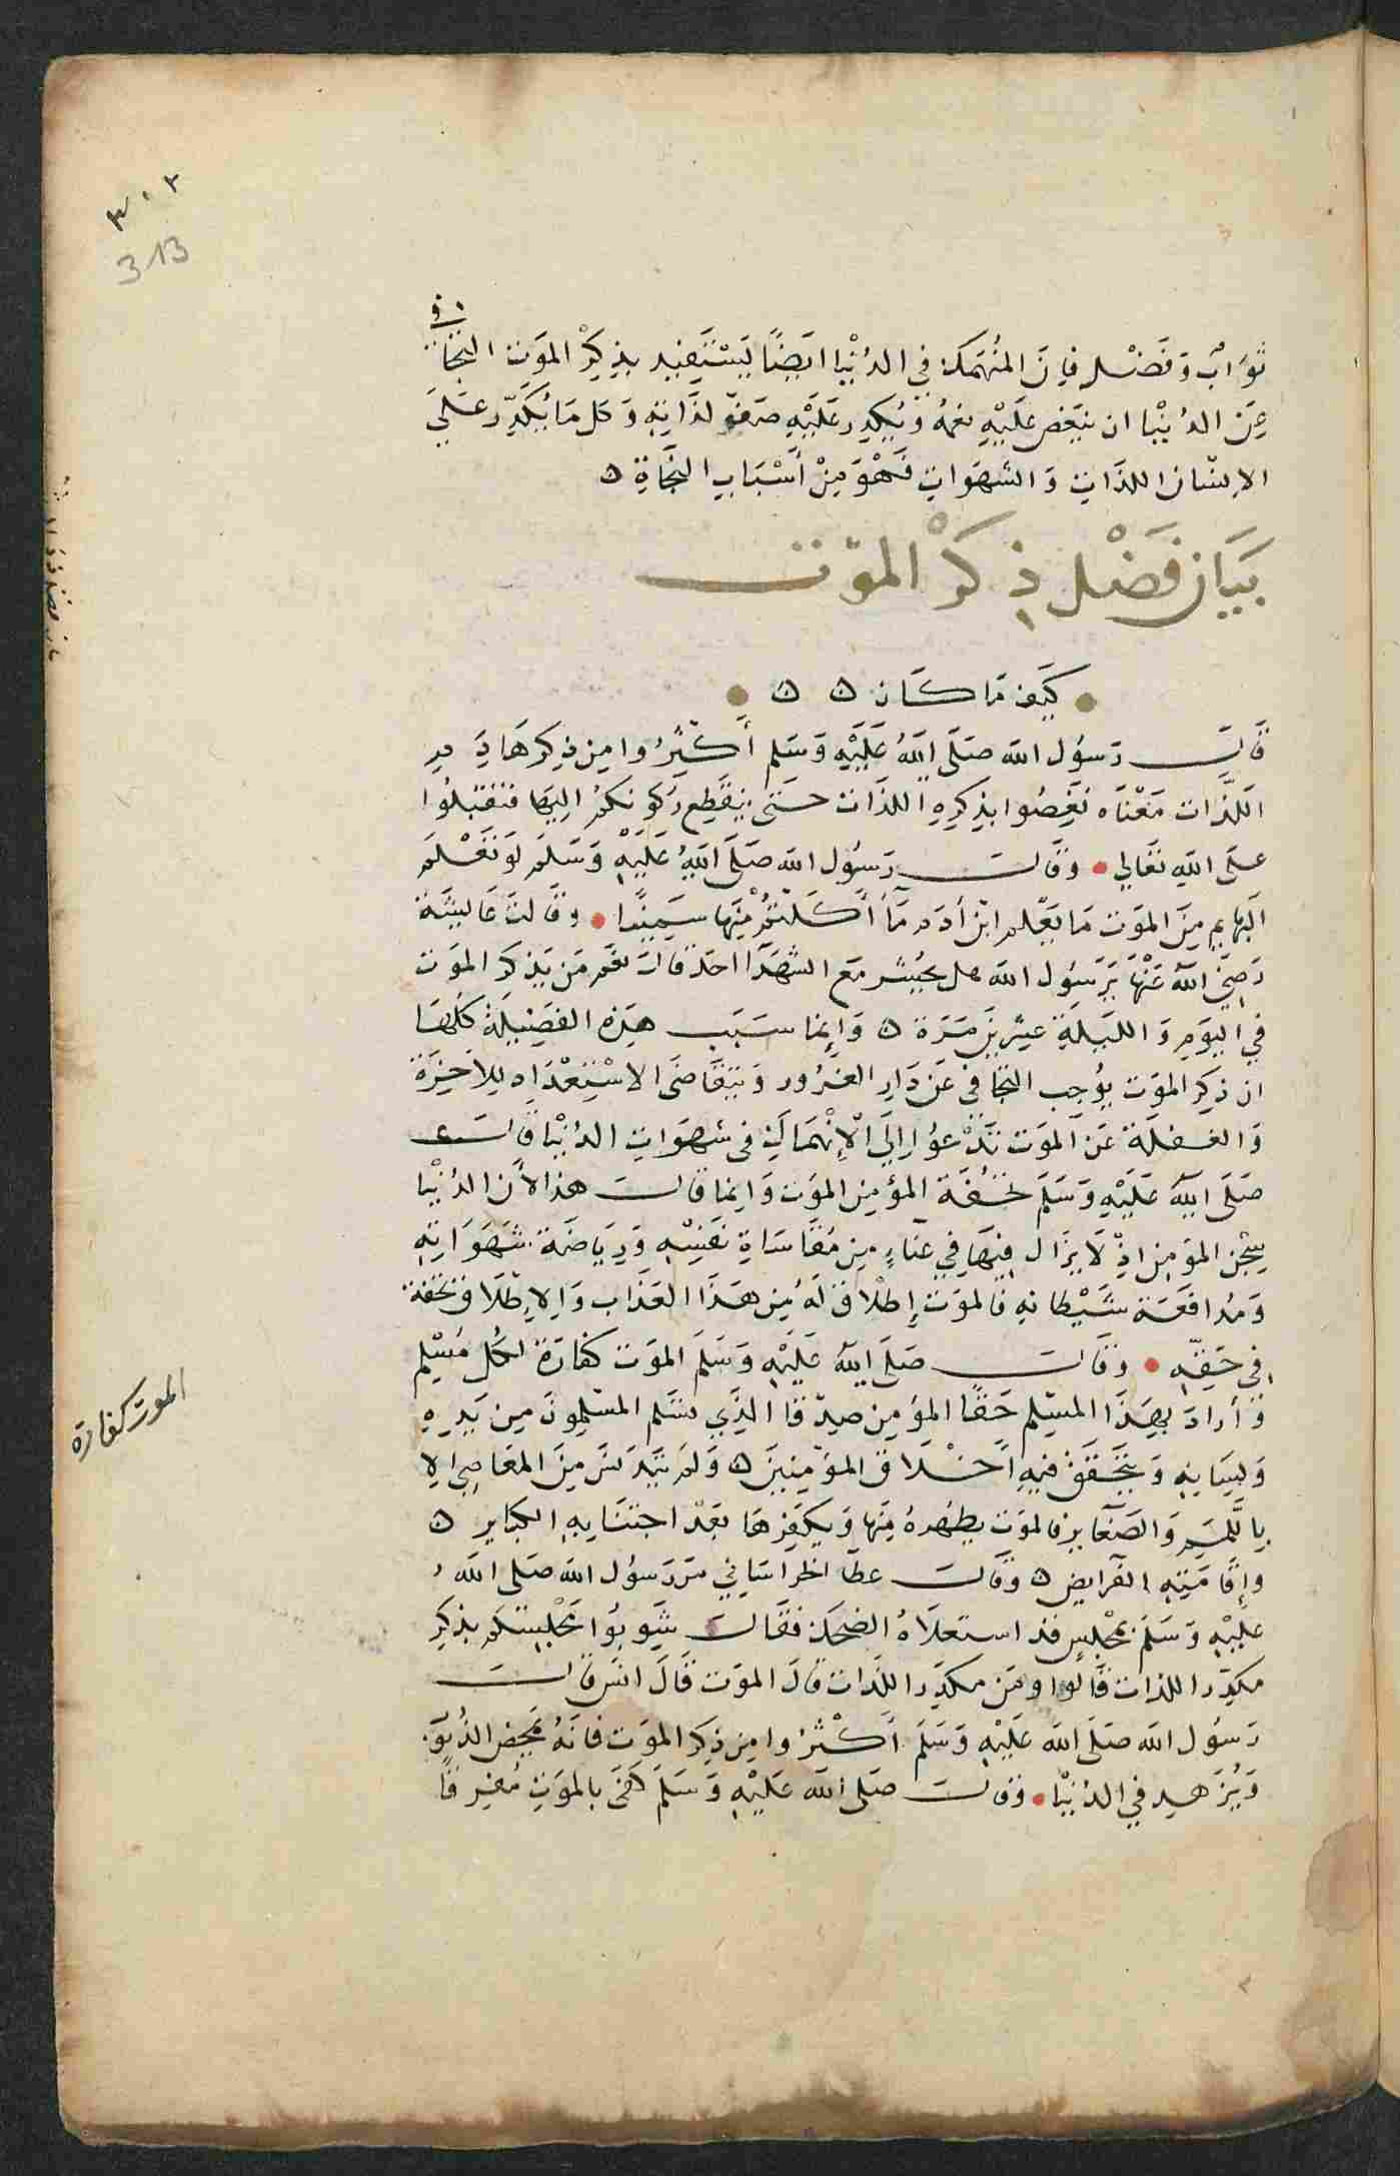 ٣٠٢
313
ثَوَابٌ وَفَضْل فاِنَ المُنْهَمَك في الدُنْيا ايَضًا يَسْتَفيد بذِكِرْ المَوَت التجَا
فى
عَن الدُنْيا ان ينَغص عَلَيْهِ نعمهُ وَيُكدِر عَلَيْهِ صَفوَ لذَاتِهِ وَكل مَا يُكَدِّر عَلي
الاِنسَان اللذَاتِ وَالشهَوَاتِ فَهْوَ مِنْ أَسْبَابِ النجَاةِ ه
بَيَان فَضْل ذِكرْ الموَت
كيَف مَا كَان ه ه
قَالَ رَسُول الله صَلَى اللهُ عَلَيْهِ وَسَلم أَكثِرُوا مِن ذِكرِ هَاذِمِ
اللَّذَات مَعْنَاه نَغِصُوا بذِكرِهِ اللذَات حَتى يَنقَطِع رُكونكمُ اِليهَا فتقبلُوا
على اللهِ تعَالي وقَالَ رَسُول الله صَلَى اللهُ عَلَيْهِ وَسَلمَ لوَ تَعْلمَ
البَهَايمِ مِنَ المَوَت مَا يعَلم ابْن أدَم مَا أَكَلتمُ مِنهَا سَمِينًا وقَالتَ عَايشَة
رَضِيَ اللهُ عَنْهَا يَرسُول الله هل يحُشر مَع الشهَدَا احَد قالَ نعَم مَن يَذكر الموَت
في اليوَمِ وَالليَلةِ عشرينَ مَرَة ه وَانما سَبَب هَذِه الفضِيلَة كلهَا
ان ذِكر الموَت يوُجِب التجَافي عَن دَارِ الغرُور وَيتقَاضَى الاسْتِعْدَاد للاخِرَة
وَالغفلَة عَن الموَت تَدْعوُا اِلَي الاِنْهمَاكِ فى شهَوَاتِ الدُنْيا قال
صَلَى اللهُ عَلَيْهِ وَسَلمَ تحُفَة المؤمِن الموَت وَانما قالَ هذا لأَن الدُنْيا
سِجْن المؤمِن اذ لَا يزَال فيهَا فِي عنَاءٍ مِن مُقَاسَاةِ نفَسِهِ وَرِيَاضَة شهَوَاتِهِ
وَمُدافَعَة شَيْطانهِ فالموَت إطْلاق لَهُ مِن هَذَا العَذَاب وَالاِطْلَاق تحفَة
فى حَقِهِ وقَالَ صَلَى اللهُ عَلَيْهِ وَسَلمَ الموَت كفارَة لكُل مُسْلِم
وَأرادَ بِهَذَا المسْلِم حَقًا المؤمِن صِدقا الذِي سَلم المسْلِمُونَ مِن يَدِهِ
وَلِسَانِهِ وَيتَحَقق فيهِ أخْلَاق المؤمِنِينَ ه وَلم يَتدَنس مِنَ المعَاصِي اِلا
بِاللمَمِ وَالصَغَايرِ فالموَت يطهرهُ مِنها وَيكَفِرهَا بعَدْ اجتنَابِهِ الكبَاير ه
وَاِقَامَتِهِ الفَرايض ه وَقَالَ عطَا الخراسَاني مَر رَسُول الله صَلى اللهُ
عليْهِ وَسَلمَ بمَجْلِسٍ قد استعلاَهُ الضحَك فقَالَ شوَبوُا مجَْلِسَكم بذِكرِ
مكدِّر اللذات قَالوا ومَن مكدِر اللذات قَالَ الموَت قَالَ انَس قالَ
رَسُول الله صَلَى الله عَلَيْهِ وَسَلمَ أَكْثرُوا مِن ذِكر الموَت فانهُ يمحِض الذُنوَب
وَيُزَهِد فِي الدُنيْا وَقالَ صَلى الله عَلَيْهِ وَسَلمَ كَفَى بالموَتِ مُفرِقًا
الموت كفارة